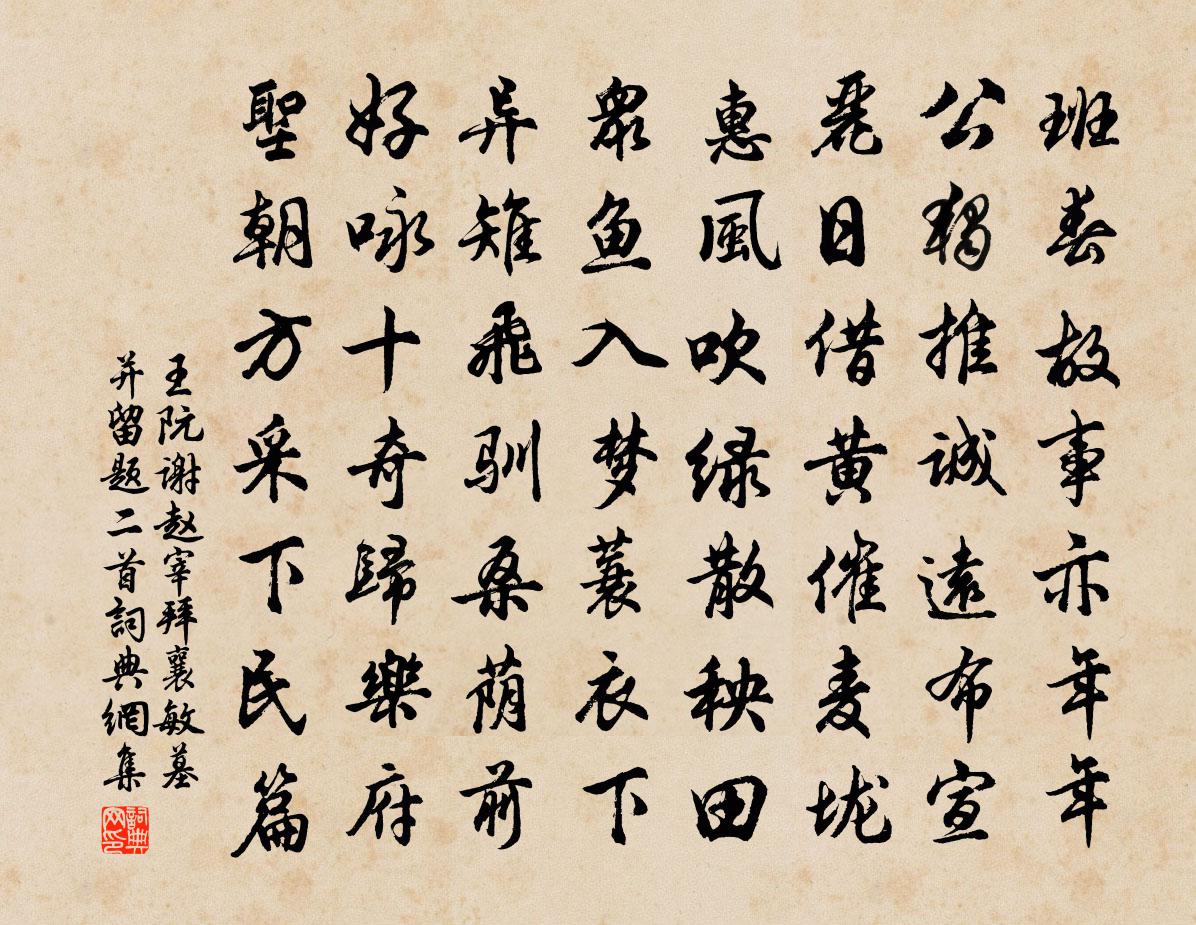 班春故事亦年年
公独推誠遠布宣
麗日借黄催麦垅
惠風吹绿散秧田
衆鱼入梦蓑衣下
异雉飛驯桑荫前
好咏十奇歸樂府
聖朝方采下民篇
王阮谢赵宰拜襄敏墓
并留题二首詞典網集
詞典
网印